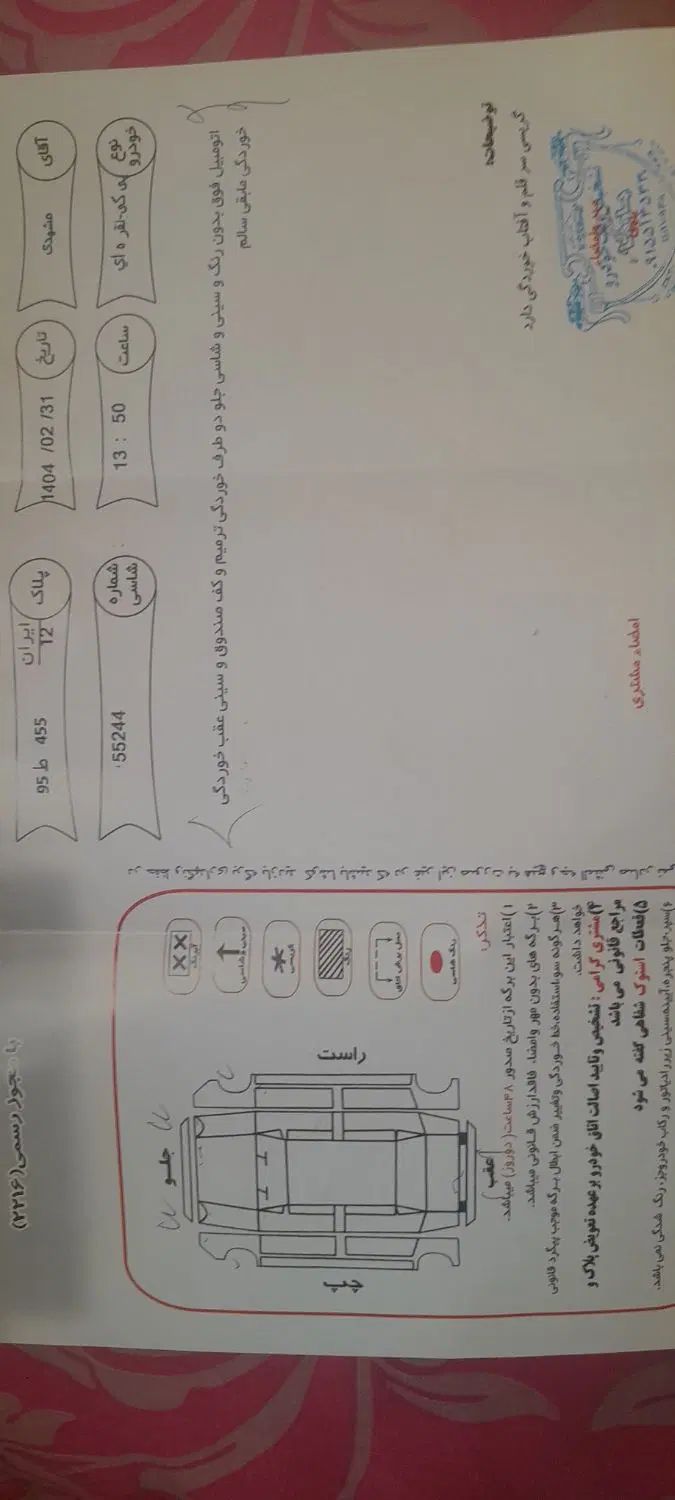 با مجوز رسمی (۲۲۱۶)
آقای
مشهدی
تاریخ
1404 /02 /31
پلاک
ایران
12
455 ط 95
نوع خودرو
نقره ای
ساعت
13 : 50
شماره شاسی
55244
اتومبیل فوق بدون رنگ و سینی و شاسی جلو دو طرف خوردگی ترمیم و کف صندوق و سینی عقب خوردگی
خوردگی مابقی سالم
توضیحات:
گریسی سر قلم و آفتاب خوردگی دارد
امضاء مشتری
جلو
عقب
راست
رنگ
تذکر:
۱)اعتبار این برگه از تاریخ صدور ۴۸ساعت( دوروز) میباشد.
۲)برگه های بدون مهر وامضاء فاقد ارزش قانونی میباشد.
۳)هرگونه سواستفاده،خط خوردگی وتغییر ضمن ابطال برگه موجب پیگرد قانونی
خواهد داشت.
۴)مشتری گرامی : تشخیص وتایید اصالت اتاق خودرو برعهده تعویض پلاک و
مراجع قانونی می باشد
۵)قطعات استوک شفاهی گفته می شود